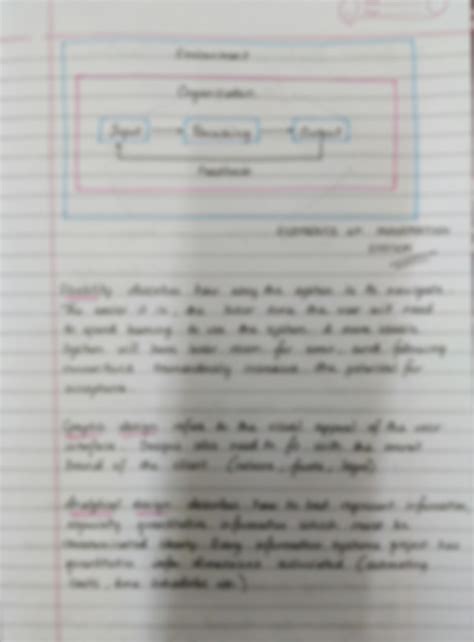 Environment
Organization
Input Processing Output
Feedback
ELEMENTS OF INFORMATION
SYSTEM
Usability describes how easy the system is to navigate.
The easier it is, the time the user will need
to spend learning to use the system. A more
system will have room for error, and following
tremendously increase the potential for
acceptance.
Graphic design refers to the visual appeal of the user
interface. Designs also need to fit with the overall
brand of the client (colours, fonts, logo).
Analytical design describes how to best represent information,
especially quantitative information which must be
communicated clearly. Every information systems project has
quantitative info dimensions associated (estimating
costs, time schedules etc.)